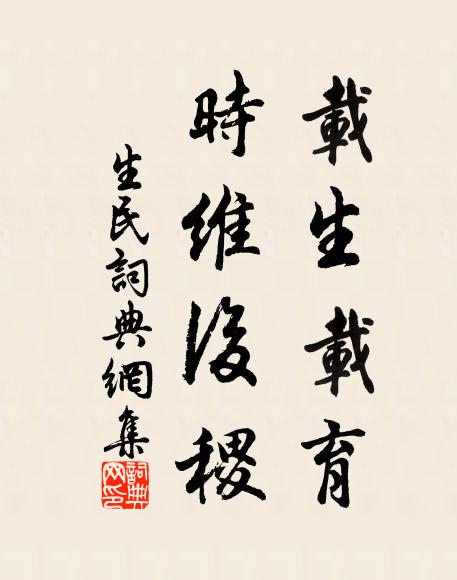 載生載育
時維後稷
生民詞典網集
詞典
网印